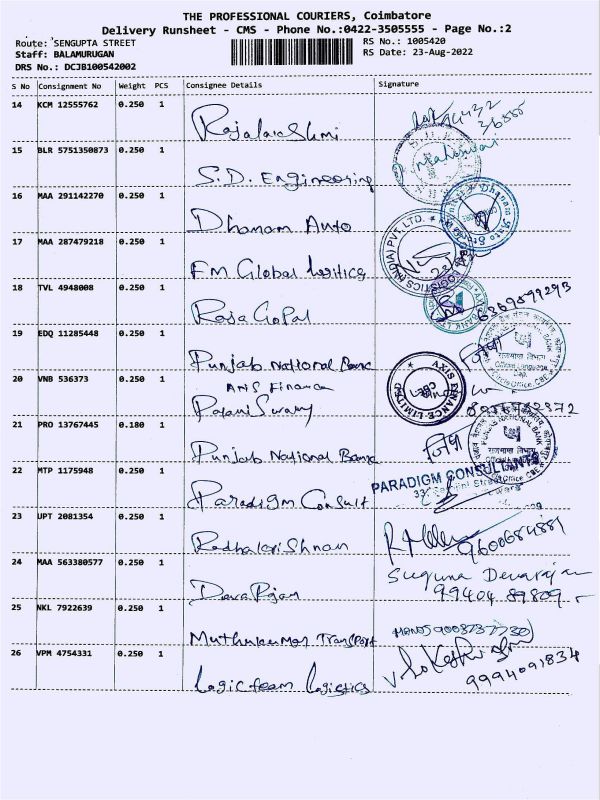 THE PROFESSIONAL COURIERS, Coimbatore
Delivery Runsheet - CMS - Phone No.:0422-3505555 - Page No.:2
Route: SENGUPTA STREET
RS No.: 1005420
Staff: BALAMURUGAN
RS Date: 23-Aug-2022
DRS No.: DCJB100542002
S No Consignment No Weight PCS Consignee Details Signature
14 KCM 12555762 0.250 1
Rajalakshmi
15 BLR 5751350873 0.250 1
S.D. Engineering
16 MAA 291142270 0.250 1
Dhanam Auto
17 MAA 287479218 0.250 1
FM Global
18 TVL 4948008 0.250 1
Raja Gopal 6369899293
19 EDQ 11285448 0.250 1
Punjab National Bank
20 VNB 536373 0.250 1
ANS Finance
PalaniSwamy
AXIS FINANCE LIMITED
21 PRO 13767445 0.180 1
Punjab National Bank
PUNJAB NATIONAL BANK
22 MTP 1175948 0.250 1
Paradigm Consult
PARADIGM CONSULTANTS
23 UPT 2081354 0.250 1
Radhakrishnan
9600684881
24 MAA 563380577 0.250 1
Devarajan
Suguna Devarajan
99404 89809
25 NKL 7922639 0.250 1
Muthukumar Transport
26 VPM 4754331 0.250 1
Logicteam Logistics
9994091834